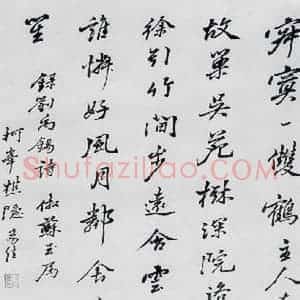 寂寞一雙鶴主人
故巢吳苑樹深院洛
徐引竹間步遠含雲
誰憐好風月鄰舍
笙
錄劉禹錫詩
柯峯樵隱
Shufaziliao.com